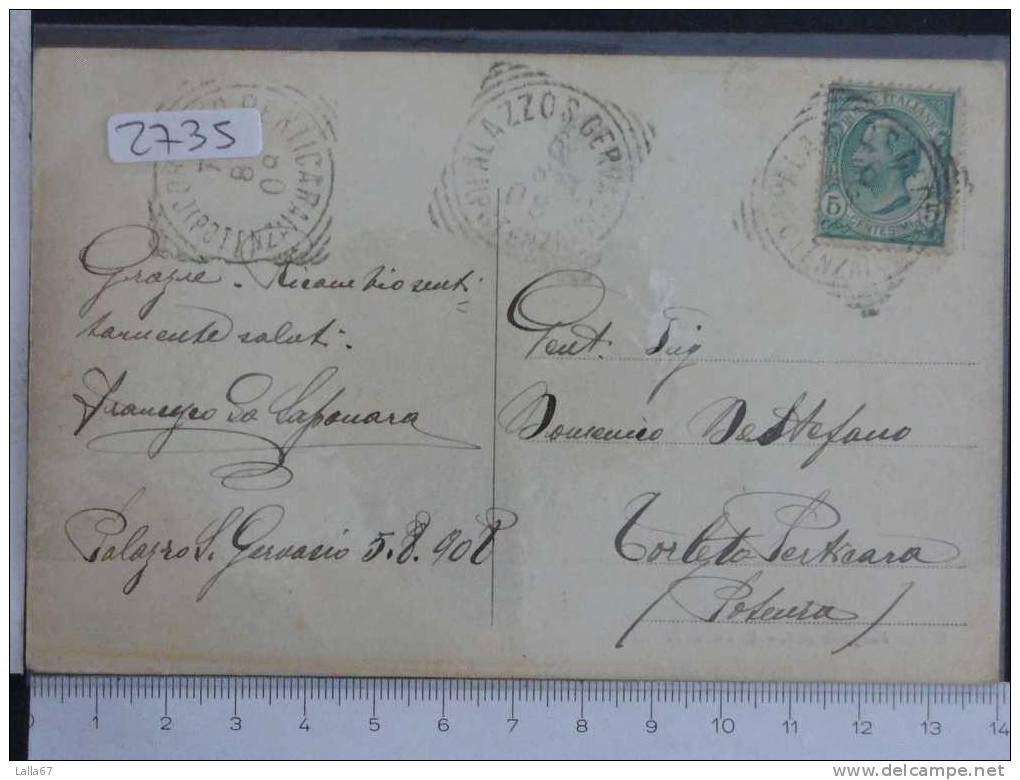 2735
CORLETO PERTICARA
(POTENZA)
PALAZZO S. GERVASIO
(POTENZA)
POSTE ITALIANE
5 CENTESIMI 5
Grazie. Ricambio senti
tamente saluti.
Francesco La Saponara
Palazzo S. Gervasio 5.8.908
Gent. Sig
Domenico De Stefano
Corleto Perticara
(Potenza)
0 1 2 3 4 5 6 7 8 9 10 11 12 13 14
Lalla67
www.delcampe.net